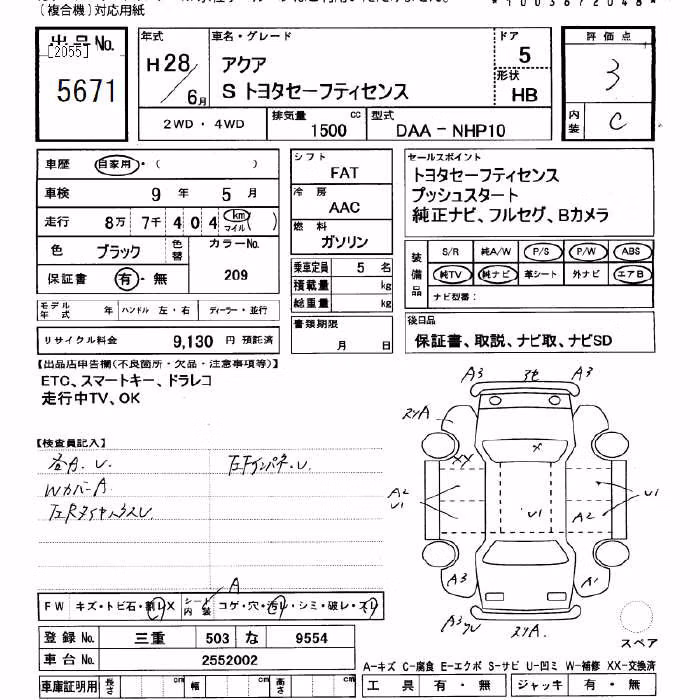 (複合機)対応用紙
*10036720​48*
出品No.
[2055]
5671
年式
H28
6月
車名・グレード
アクア
S トヨタセーフティセンス
ドア
5
形状
HB
評価点
3
内装
C
2WD・4WD
排気量
1500 cc
型式
DAA-NHP10
車歴 自家用・( )
車検 9年 5月
走行 8万 7千 4 0 4 km マイル( )
色 ブラック 色替
カラーNo.
209
保証書 有・無
モデル年式 年 ハンドル 左・右 ディーラー・並行
リサイクル料金 9,130 円 預託済
シフト
FAT
冷房
AAC
燃料
ガソリン
乗車定員 5 名
積載量 kg
総重量 kg
書類期限
月 日
セールスポイント
トヨタセーフティセンス
プッシュスタート
純正ナビ、フルセグ、Bカメラ
装備品
S/R 純A/W P/S P/W ABS
純TV 純ナビ 革シート 外ナビ エアB
ナビ型番:
後日品
保証書、取説、ナビ取、ナビSD
【出品店申告欄(不良箇所・欠品・注意事項等)】
ETC、スマートキー、ドラレコ
走行中TV、OK
【検査員記入】
各A.U.
WカバーA
左Fインパネ.U.
A3
A3
X
XX
A2
U1
U1
U1
A2
A3
A1
FW キズ・トビ石・割レX シート内装 コゲ・穴・汚レ・シミ・破レ・スレ
A
登録No. 三重 503 な 9554
車台No. 2552002
車庫証明用 長さ cm 幅 cm 高さ cm
スペア
A-キズ C-腐食 E-エクボ S-サビ U-凹ミ W-補修 XX-交換済
工具 有・無 ジャッキ 有・無